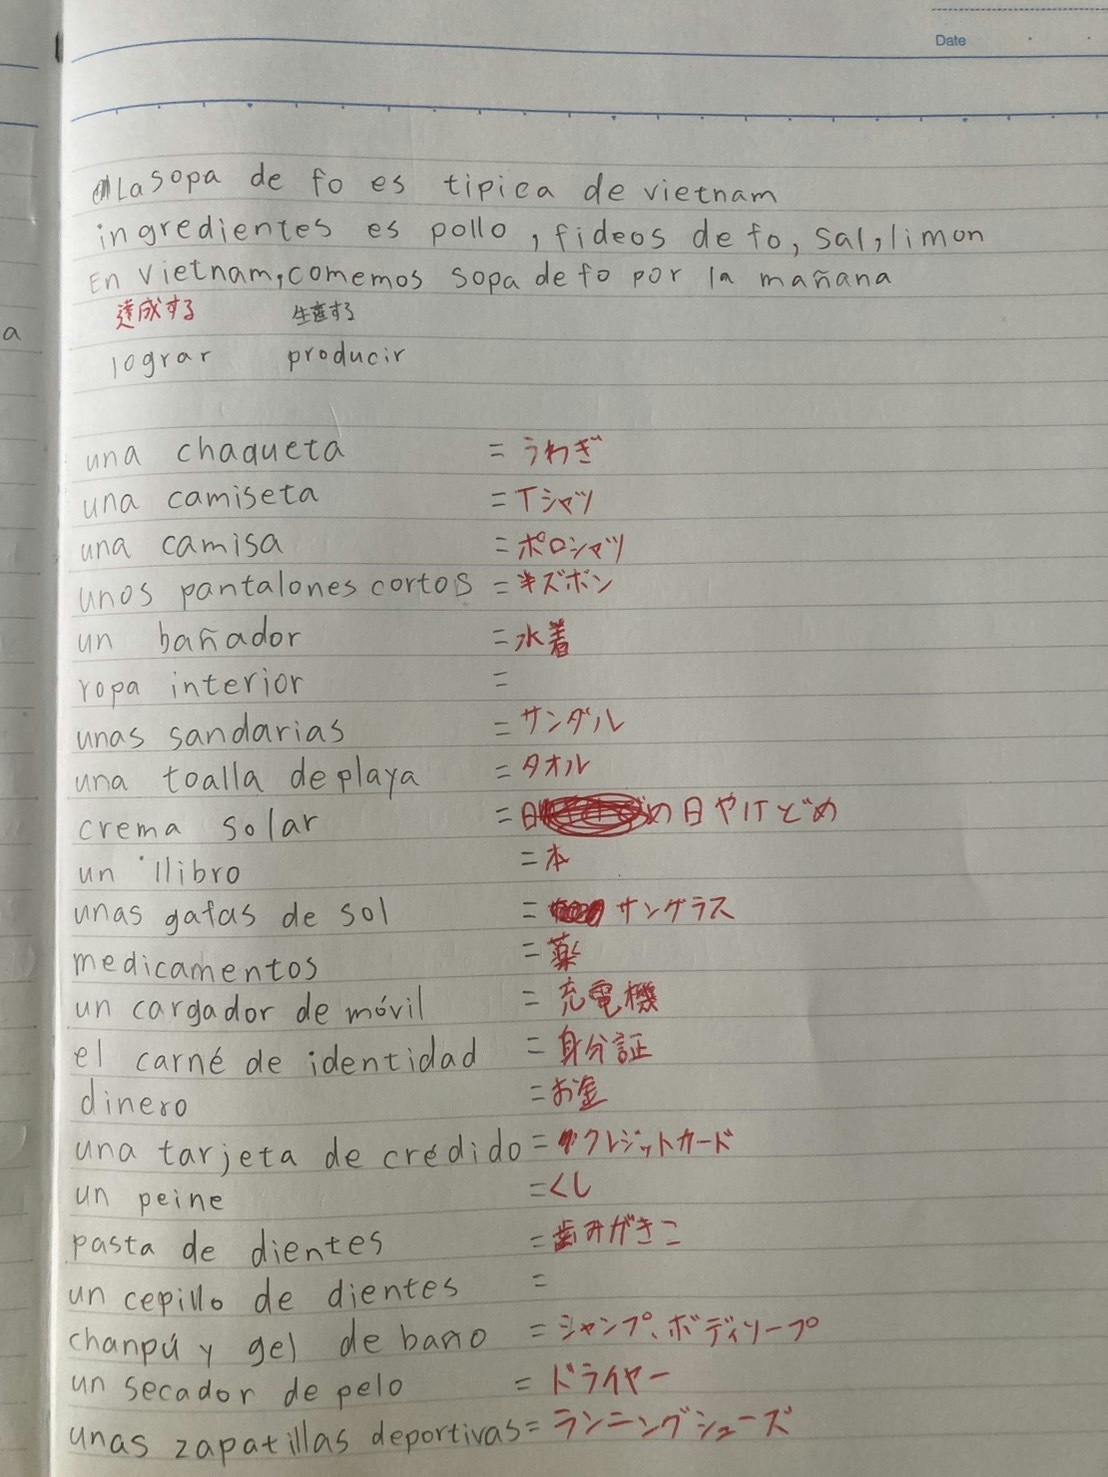 Date
La sopa de fo es tipica de vietnam
ingredientes es pollo, fideos de fo, sal, limon
En vietnam, comemos sopa de fo por la mañana
達成する 生産する
a
lograr producir
una chaqueta = うわぎ
una camiseta = Tシャツ
una camisa = ポロシャツ
unos pantalones cortos = 半ズボン
un bañador = 水着
ropa interior =
unas sandarias = サンダル
una toalla de playa = タオル
crema solar = 日やけどめ
un llibro = 本
unas gafas de sol = サングラス
medicamentos = 薬
un cargador de móvil = 充電機
el carné de identidad = 身分証
dinero = お金
una tarjeta de crédido = クレジットカード
un peine = くし
pasta de dientes = 歯みがきこ
un cepillo de dientes =
chanpú y gel de baño = シャンプ、ボディソープ
un secador de pelo = ドライヤー
unas zapatillas deportivas = ランニングシューズ